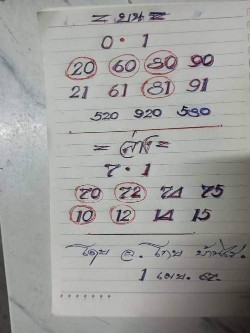 = บน =
0 · 1
20 60 80 90
21 61 81 91
520 920 580
= ล่าง =
7 · 1
70 72 74 75
10 12 14 15
โดย อ.
1